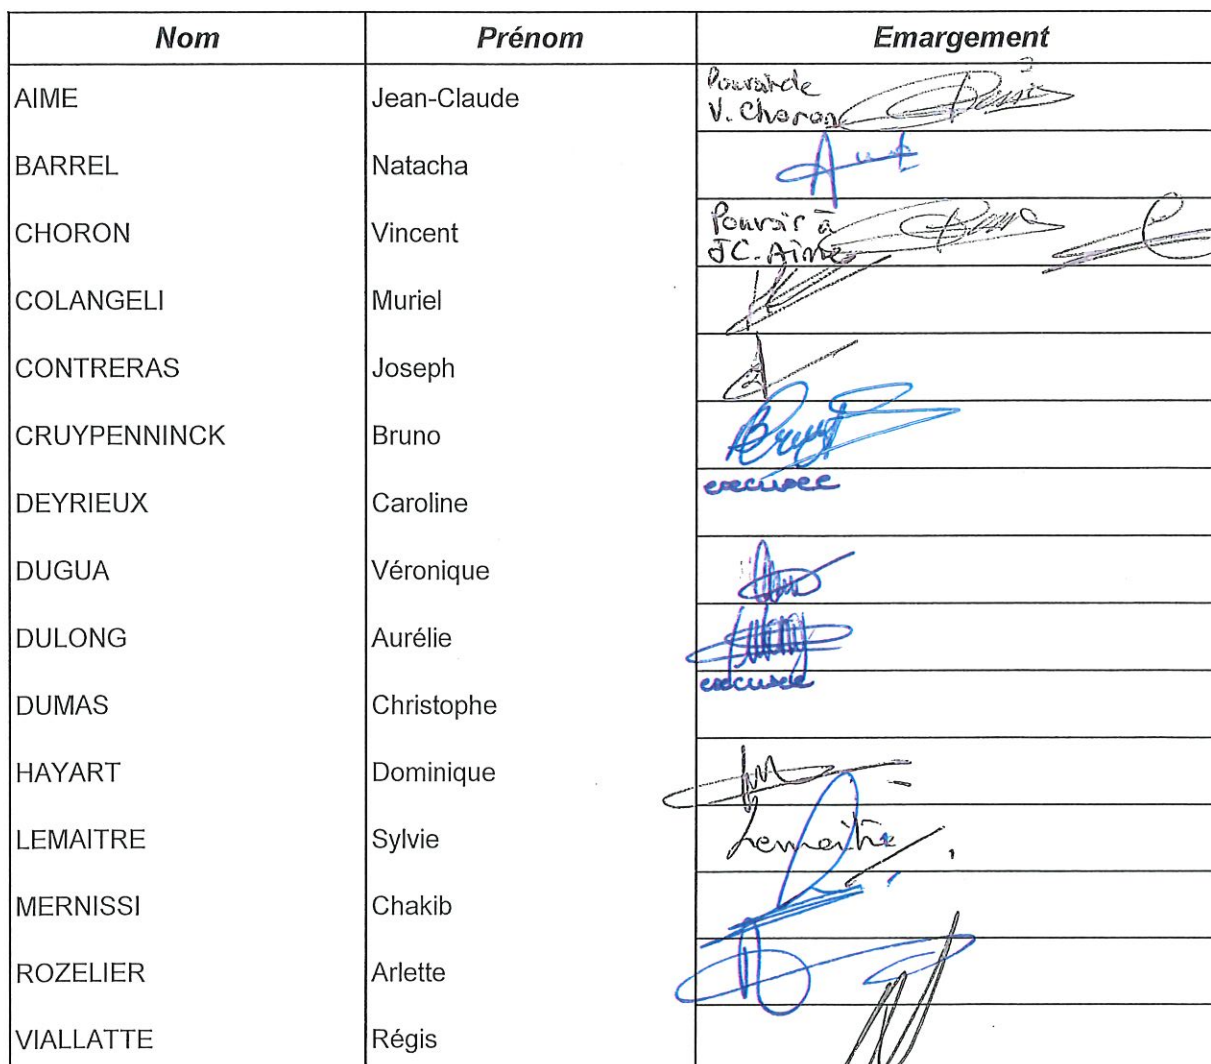 Nom Prénom Emargement
AIME Jean-Claude Pouvoir de
V. Choron
BARREL Natacha
CHORON Vincent Pouvoir à
JC. Aime
COLANGELI Muriel
CONTRERAS Joseph
CRUYPENNINCK Bruno Bruno
DEYRIEUX Caroline excusée
DUGUA Véronique
DULONG Aurélie
DUMAS Christophe excusée
HAYART Dominique
LEMAITRE Sylvie Lemaitre
MERNISSI Chakib
ROZELIER Arlette
VIALLATTE Régis